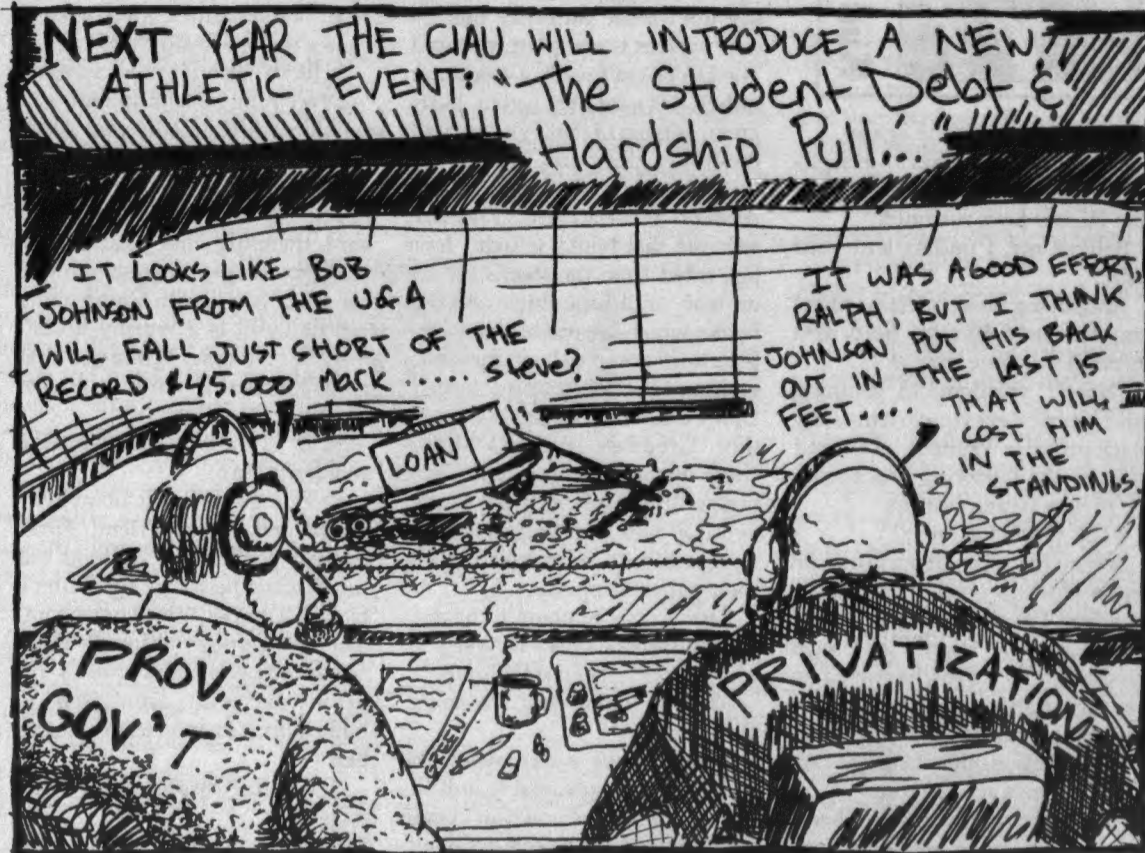 NEXT YEAR THE CIAU WILL INTRODUCE A NEW
ATHLETIC EVENT: "The Student Debt &
Hardship Pull..."
IT LOOKS LIKE BOB
JOHNSON FROM THE UofA
WILL FALL JUST SHORT OF THE
RECORD $45.000 MARK ..... Steve?
IT WAS A GOOD EFFORT,
RALPH, BUT I THINK
JOHNSON PUT HIS BACK
OUT IN THE LAST 15
FEET.... THAT WILL
COST HIM
IN THE
STANDINGS.
LOAN
PROV.
GOV'T
PRIVATIZATION